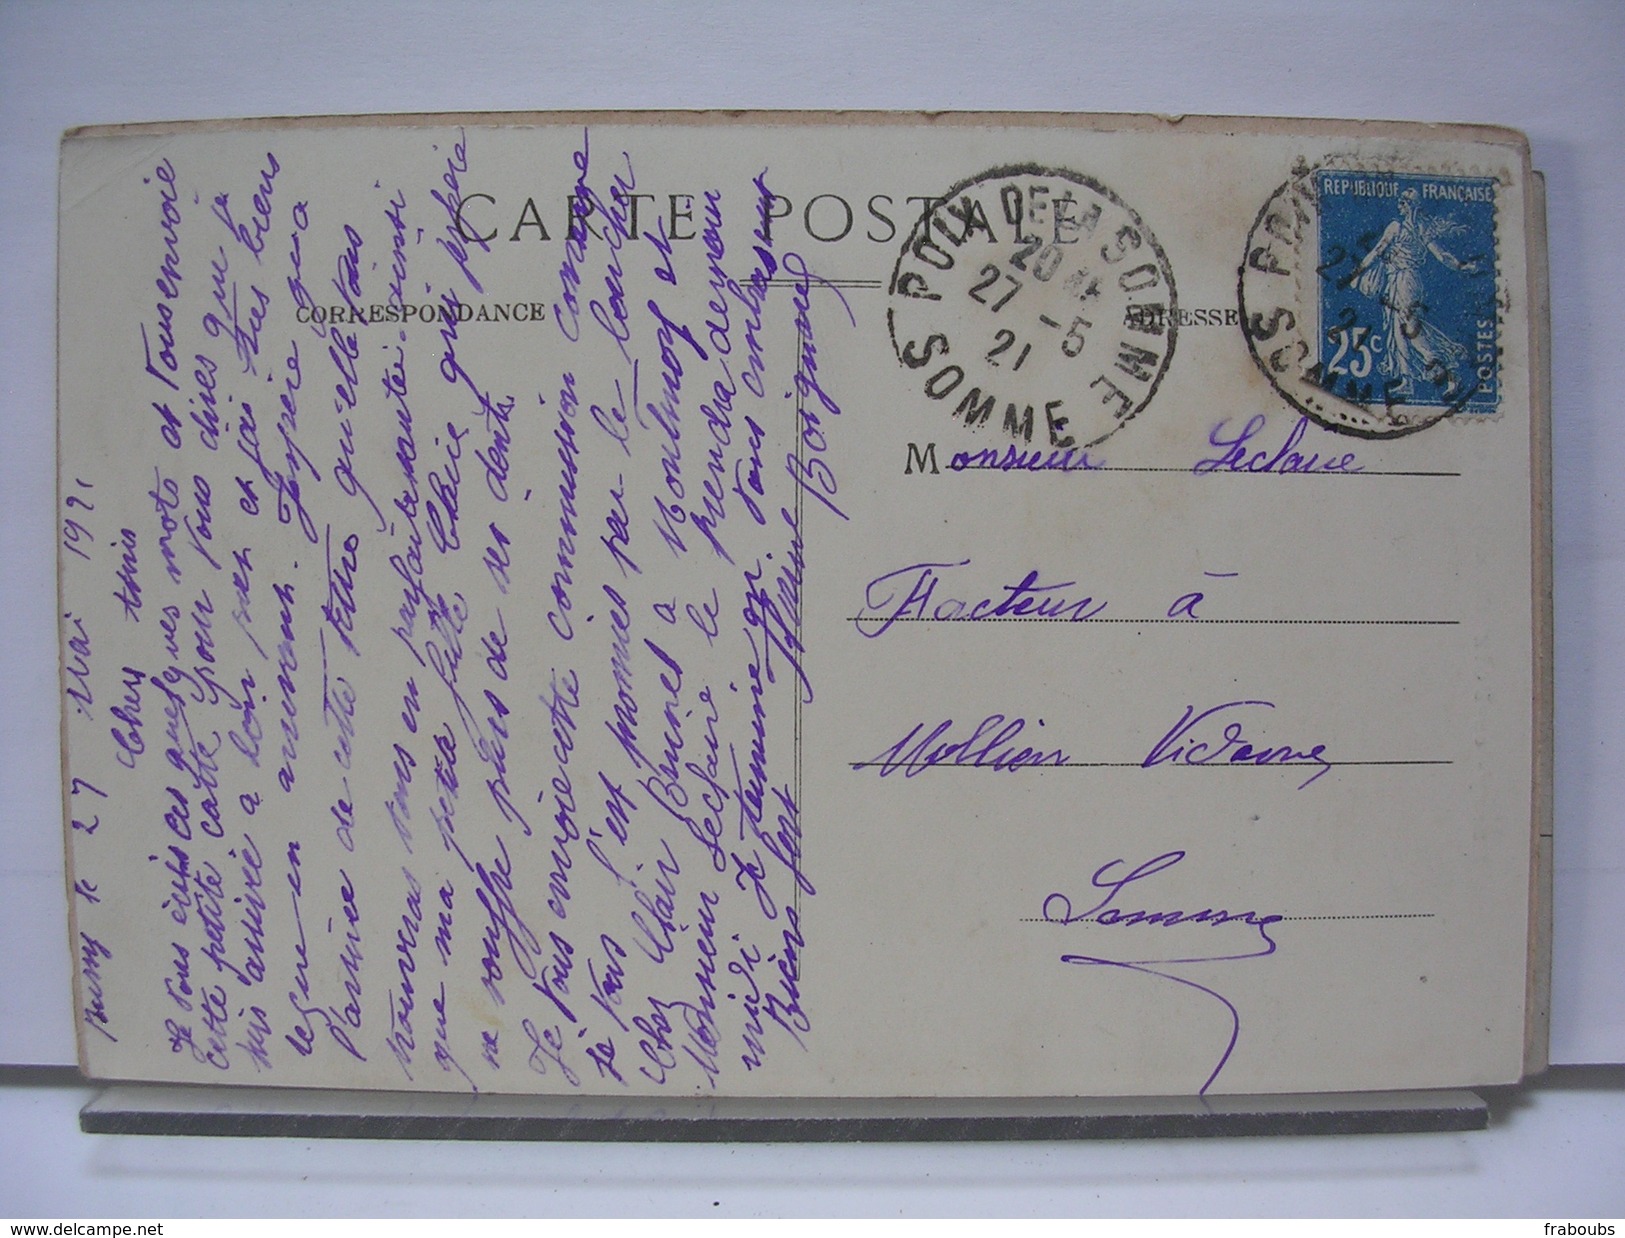 CARTE POSTALE
CORRESPONDANCE
ADRESSE
POIX DE LA SOMME
20
27 - 5
21
SOMME
REPUBLIQUE FRANÇAISE
25c
POSTES
27 - 5
SOMME
Monsieur Leclaire
Facteur à
Mollien Vidame
Somme
le 27 Mai 1921
Chers Amis
Je vous écris ces quelques mots et vous envoie
cette petite carte pour vous dires que je
suis arrivée à bon port et j'ai très bien
en arrivent. J'espère qua
l'arrivé de cette lettre qu'elle vous
trouveras tous en parfaite santé ainsi
que ma petite fille Claire qui j'espère
ne souffre plus de ses dents.
Je vous envoie cette commission comme
je vous l'est promues par le boucher
Chez Clair Brunel a Montmorf et
Monsieur Leclaire le prendra demain
midi Je termine en vous embrassent
Biens fort